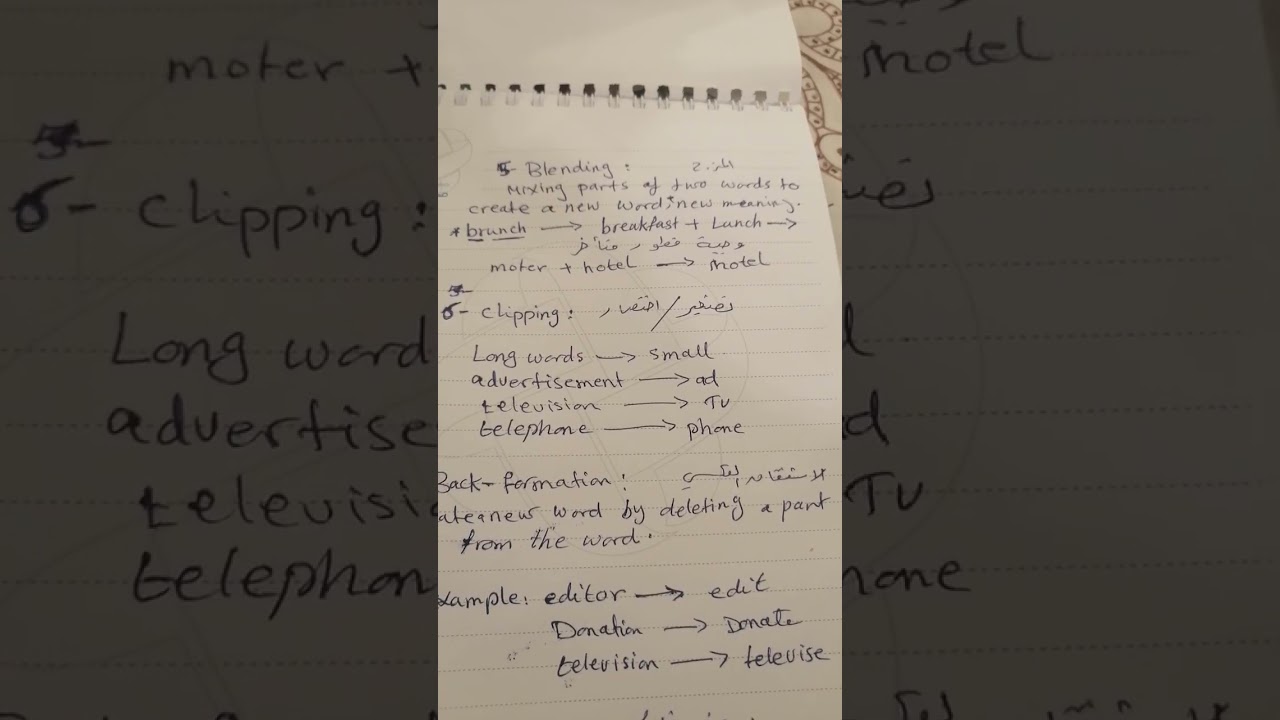 5- Blending : المزج
Mixing parts of two words to
create a new word, new meaning.
* brunch → breakfast + Lunch →
وجبة فطور متأخر
moter + hotel → motel
6- Clipping : تصغير / اختصار
Long words → small
advertisement → ad
television → TV
telephone → phone
Back-formation : الاشتقاق العكسي
ate a new word by deleting a part
from the word.
xample: editor → edit
Donation → Donate
television → televise